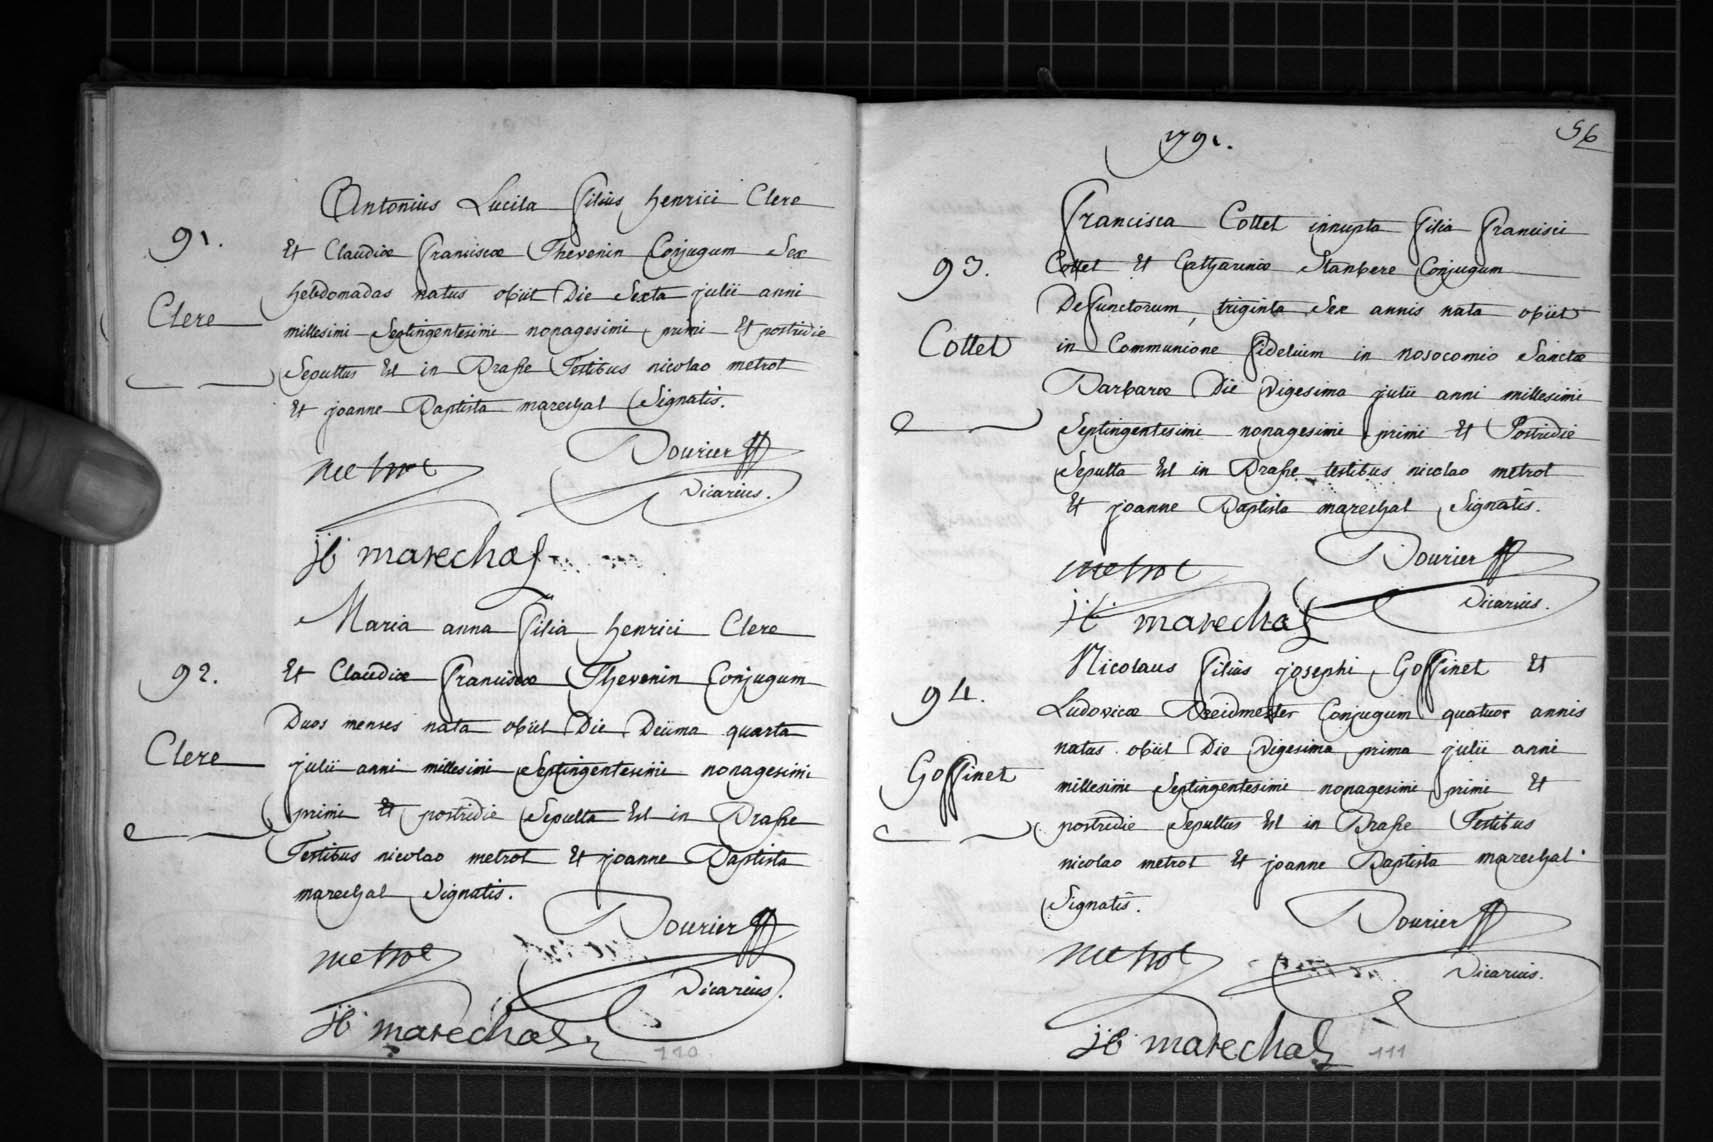 Antonius Lucila filius henrici Clere
91.
Et Claudiæ franciscæ Thevenin Conjugum Sex
hebdomadas natus obiit Die Sexta julii anni
Clere
millesimi Septingentesimi nonagesimi primi Et postridie
Sepultus Est in Brase Testibus nicolao metrot
Et joanne Baptista marechal Signatis.
Bourier
metrot
Vicarius.
jb marechal
Maria anna filia henrici Clere
92.
Et Claudiæ franciscæ Thevenin Conjugum
Duos menses nata obiit Die Decima quarta
Clere
julii anni millesimi Septingentesimi nonagesimi
primi Et postridie Sepulta Est in Brase
Testibus nicolao metrot Et joanne Baptista
marechal Signatis.
Bourier
metrot
Vicarius.
jb marechal
110.
1791.
56
francisca Cottet innupta filia francisci
93.
Cottet Et Catharinæ Conjugum
Defunctorum, triginta Sex annis nata obiit
Cottet
in Communione fidelium in nosocomio Sanctæ
Barbaræ Die Vigesima julii anni millesimi
Septingentesimi nonagesimi primi Et Postridie
Sepulta Est in Brase testibus nicolao metrot
Et joanne Baptista marechal Signatis.
Bourier
metrot
Vicarius.
jb marechal
Nicolaus filius josephi Goffinet Et
94.
Ludovicæ Conjugum quatuor annis
natus obiit Die Vigesima prima julii anni
Goffinet
millesimi Septingentesimi nonagesimi primi Et
postridie Sepultus Est in Brase Testibus
nicolao metrot Et joanne Baptista marechal
Signatis.
Bourier
metrot
Vicarius.
jb marechal
111